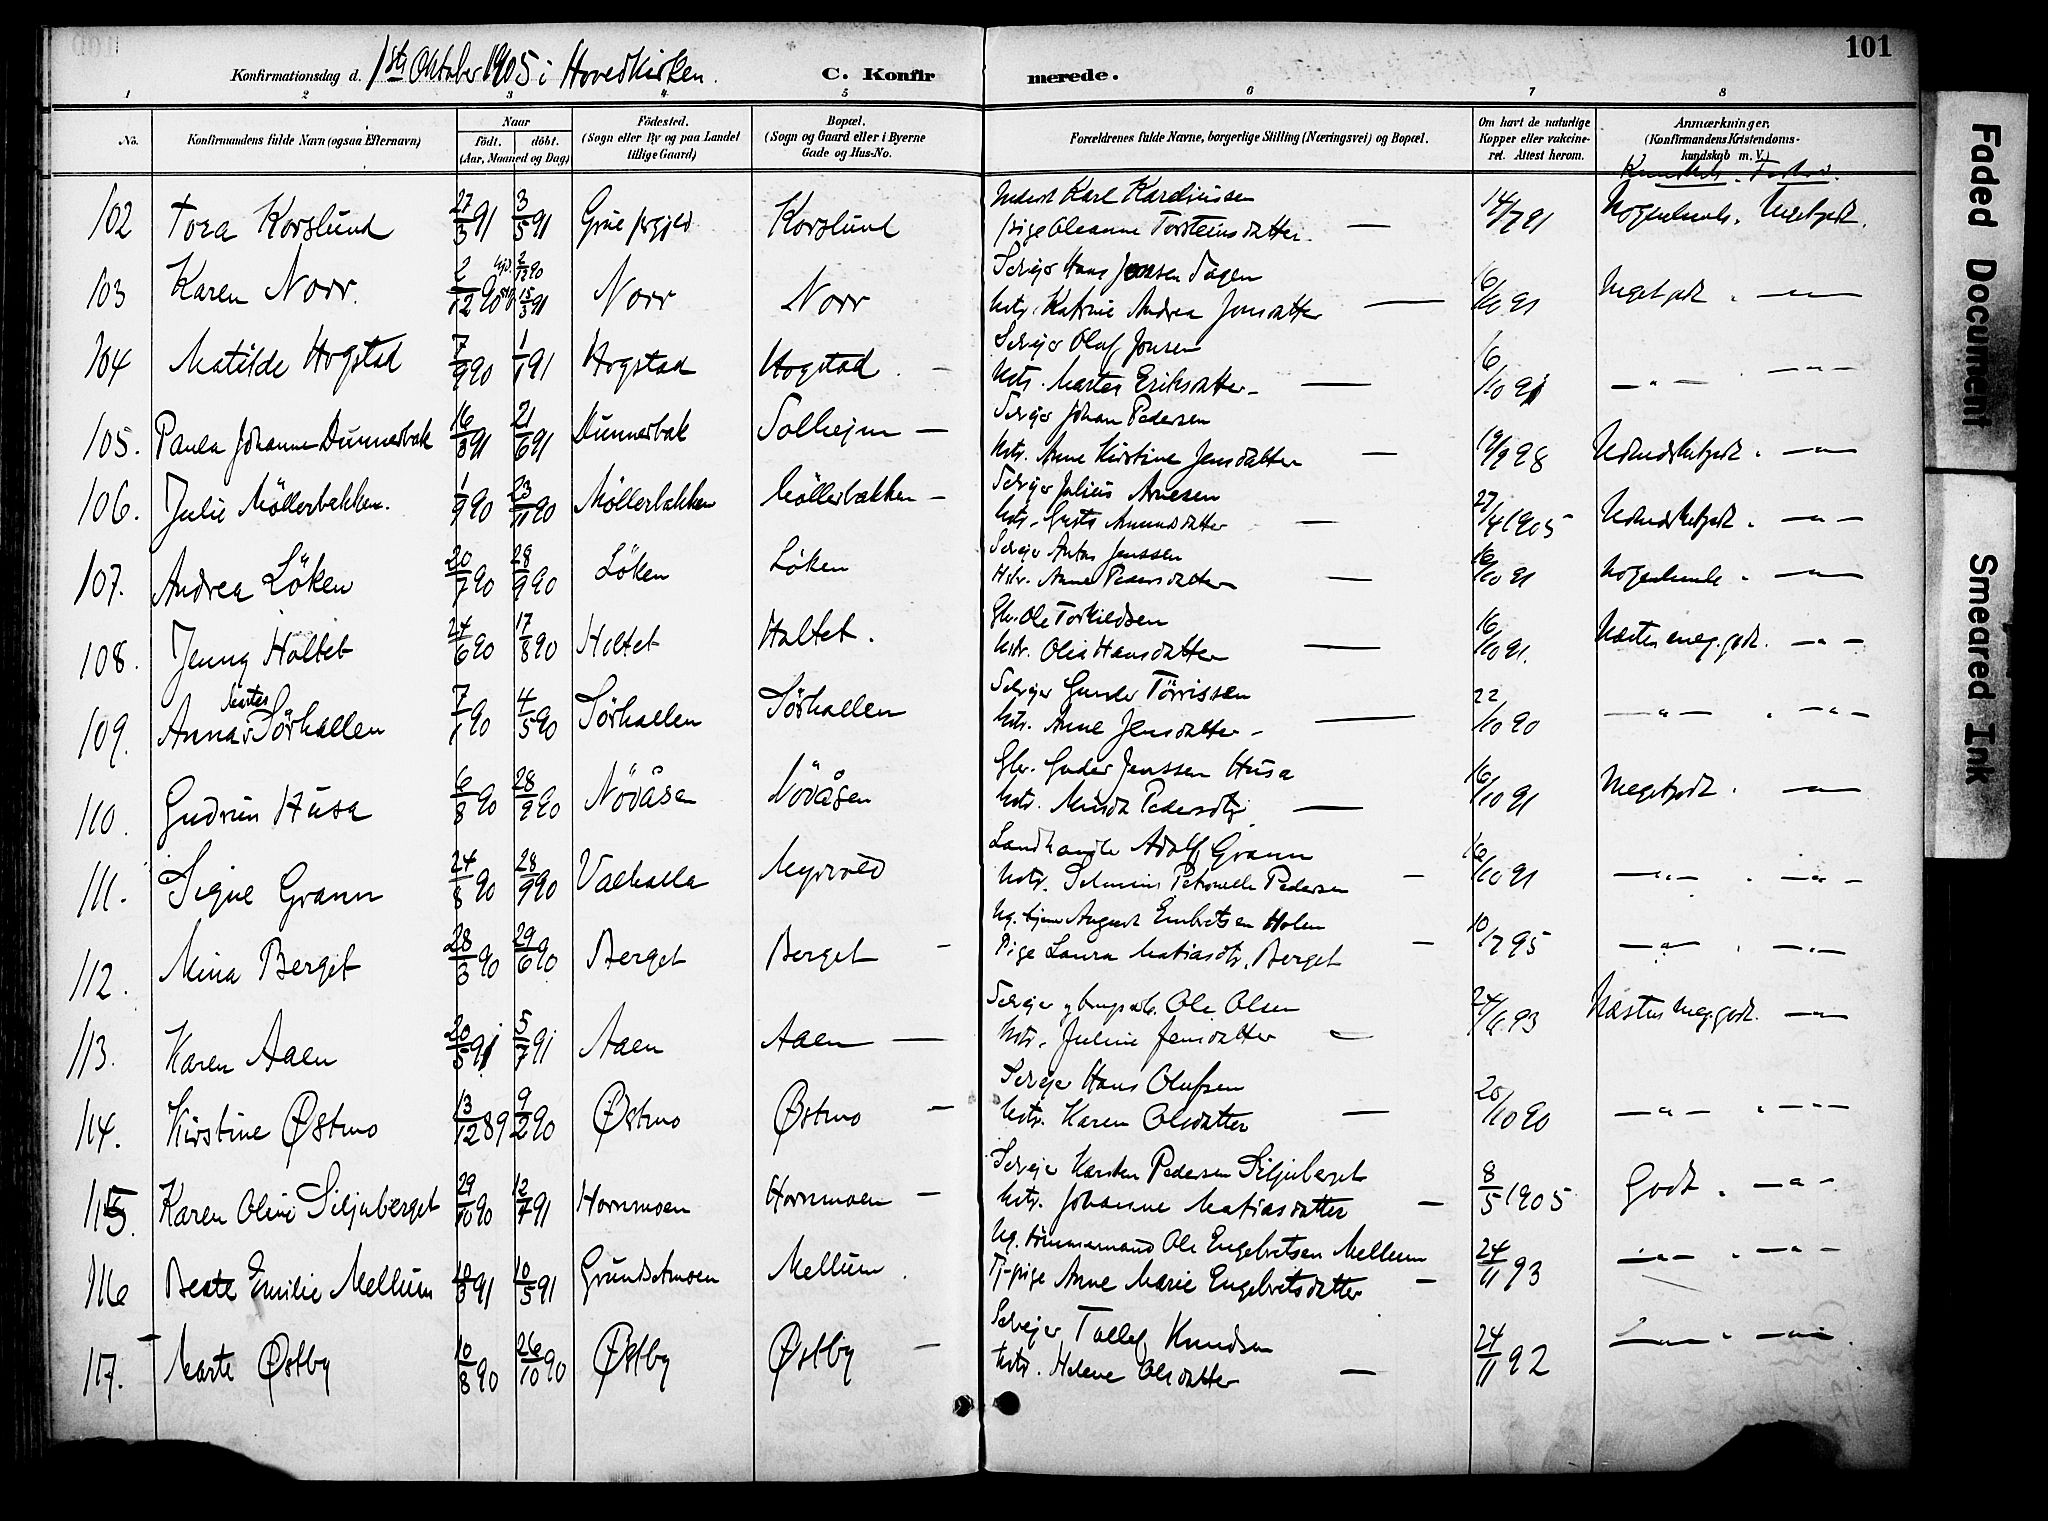 101
Konfirmationsdag d. 1ste Oktober 1905 i Hovedkirken. C. Konfirmerede.
1 2 3 4 5 6 7 8
No. Konfirmandens fulde Navn (ogsaa Efternavn) Naar født. døbt. (Aar, Maaned og Dag) Födested. (Sogn eller By og paa Landet tillige Gaard) Bopæl. (Sogn og Gaard eller i Byerne Gade og Hus-No. Forældrenes fulde Navne, borgerlige Stilling (Næringsvei) og Bopæl. Om havt de naturlige Kopper eller vakcineret. Attest herom. Anmærkninger, (Konfirmandens Kristendomskundskab m. V.)
102 Tora Korslund 27/3 91 3/5 91 Grue Korslund Karl Karelinssen 14/7 91 Meget godt.
Pige Oleanne Torsteinsdatter —
103 Karen Norr. 2/12 90 2/12 90 15/3 91 Norr Norr Selvejer Hans Jensen Tagen
Hstr. Katrine Andrea Jonsdatter — 16/10 91 Meget godt " — " —
104 Matilde Hogstad 7/9 90 1/1 91 Hogstad Hogstad. — Selvejer Olaf Jonsen
Hstr. Martea Eriksdatter — 16/10 91 — " — — " —
105. Paula Johanne Dunnerbak 16/3 91 21/6 91 Dunnerbak Solhejm — Selvejer Johan Pedersen
Hstr. Anne Kirstine Jensdatter — 19/9 98 Udmerket godt " — " —
106. Julie Möllerbakken. 1/9 90 23/11 90 Möllerbakken Möllerbakken — Selvejer Julius Arnesen
Hstr. Grete Amundsdatter — 27/4 1905 Udmerket godt " — " —
107. Andrea Löken 20/7 90 28/9 90 Löken Löken Selvejer Anton Jenssen
Hstr. Anne Pedersdatter — 16/10 91 — " —
108. Jenny Holtet 24/6 90 17/8 90 Holtet Holtet. Gbr. Ole Torkildsen
Hstr. Olea Hansdatter — 16/10 91. Næsten meg. godt. — " —
109. Anna Martea Sörhallen 7/1 90 4/5 90 Sörhallen Sörhallen Selvejer Gunder Törrissen
Hstr. Anne Jensdatter — 22/10 90 — " — " — " —
110. Gudrun Husa 6/8 90 28/9 90 Növåsen Növåsen Gbr. Guder Jenssen Husa
Hstr. Minda Pedersdtr. — 16/10 91 Meget godt. " — " —
111. Signe Grann 24/8 90 28/9 90 Valhalla Myrvold Landhandler Adolf Grann
Hstr. Selmine Petronelle Pedersen — 16/10 91 — " — " — " —
112. Mina Berget 28/3 90 29/6 90 Berget Berget — Ug. tjener August Embretsen Holen
Pige Laura Matiasdtr. Berget — 10/7 95 — " — " — " —
113. Karen Aaen 20/5 91 5/7 91 Aaen Aaen — Selvejer Ole Olsen
Hstr. Juline Jensdatter — 24/6 93 Næsten meg. godt. — " —
114. Kirstine Østmo 13/12 89 9/2 90 Østmo Østmo — Selvejer Hans Olufsen
Hstr. Karen Olsdatter — 20/10 90 — " — " — " —
115. Karen Oline Siljuberget 29/10 90 12/7 91 Hornmoen Hornmoen — Selvejer Karsten Pedersen Siljuberget
Hstr. Johanne Matiasdatter — 8/5 1905 Godt. " — " —
116 Beate Emilie Mellum 10/3 91 10/5 91 Grundsetmoen Mellum. Ug. tömmermand Ole Engebretsen Mellum
Tj-pige Anne Marie Engebretsdatter — 24/11 93 — " — " — " —
117. Marte Østby 10/8 90 26/10 90 Østby Østby — Selvejer Tollef Knudsen
Hstr. Helene Olsdatter — 24/11 92 — " — " — " —
Faded Document
Smeared Ink